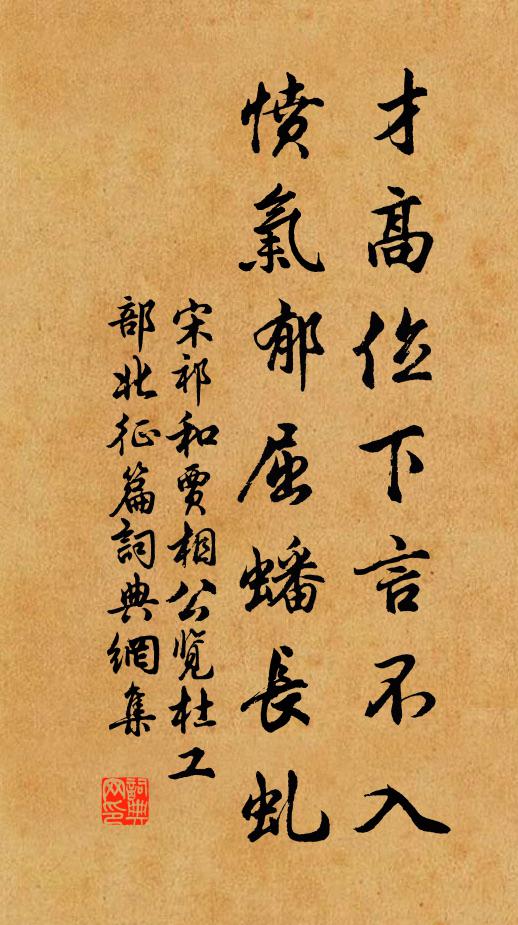 才高位下言不入
憤氣郁屈蟠長虬
宋祁和賈相公覽杜工
部北征篇詞典網集
詞典
网印